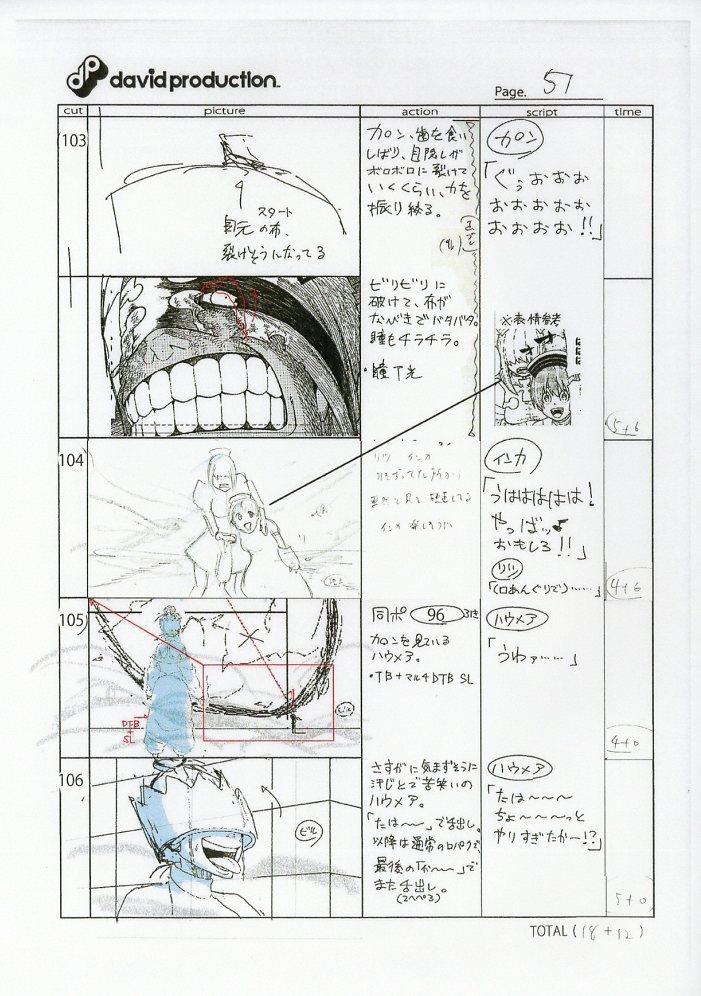 davidproduction
Page. 57
cut
picture
action
script
time
103
スタート
目元の布、
裂けそうになってる
カロン、歯を食い
しばり、目隠しが
ボロボロに裂けて
いくくらい、力を
振り絞る。
カロン
「ぐぅおおお
おおおおお
おおおお!!」
ビリビリに
破けて、布が
なびきでバタバタ。
瞳もチラチラ。
・瞳T光
※表情参考
5+6
104
リツ インカ
インカ
「うはははは!
やっぱッ♪
おもしろ!!」
リツ
「(口あんぐりで)……」
4+6
105
DTB
+
SL
ビル
同ポ 96
カロンを見ている
ハウメア。
・TB+マルチDTB SL
ハウメア
「うわァ……」
4+0
106
ビル
さすがに気まずそうに
汗じとで苦笑いの
ハウメア。
「たは〜〜」で舌出し。
以降は通常の口パクで、
最後の「か〜〜」で
また舌出し。
ハウメア
「たは〜〜〜
ちょ〜〜〜っと
やりすぎたかー!?」
5+0
TOTAL (18+12)